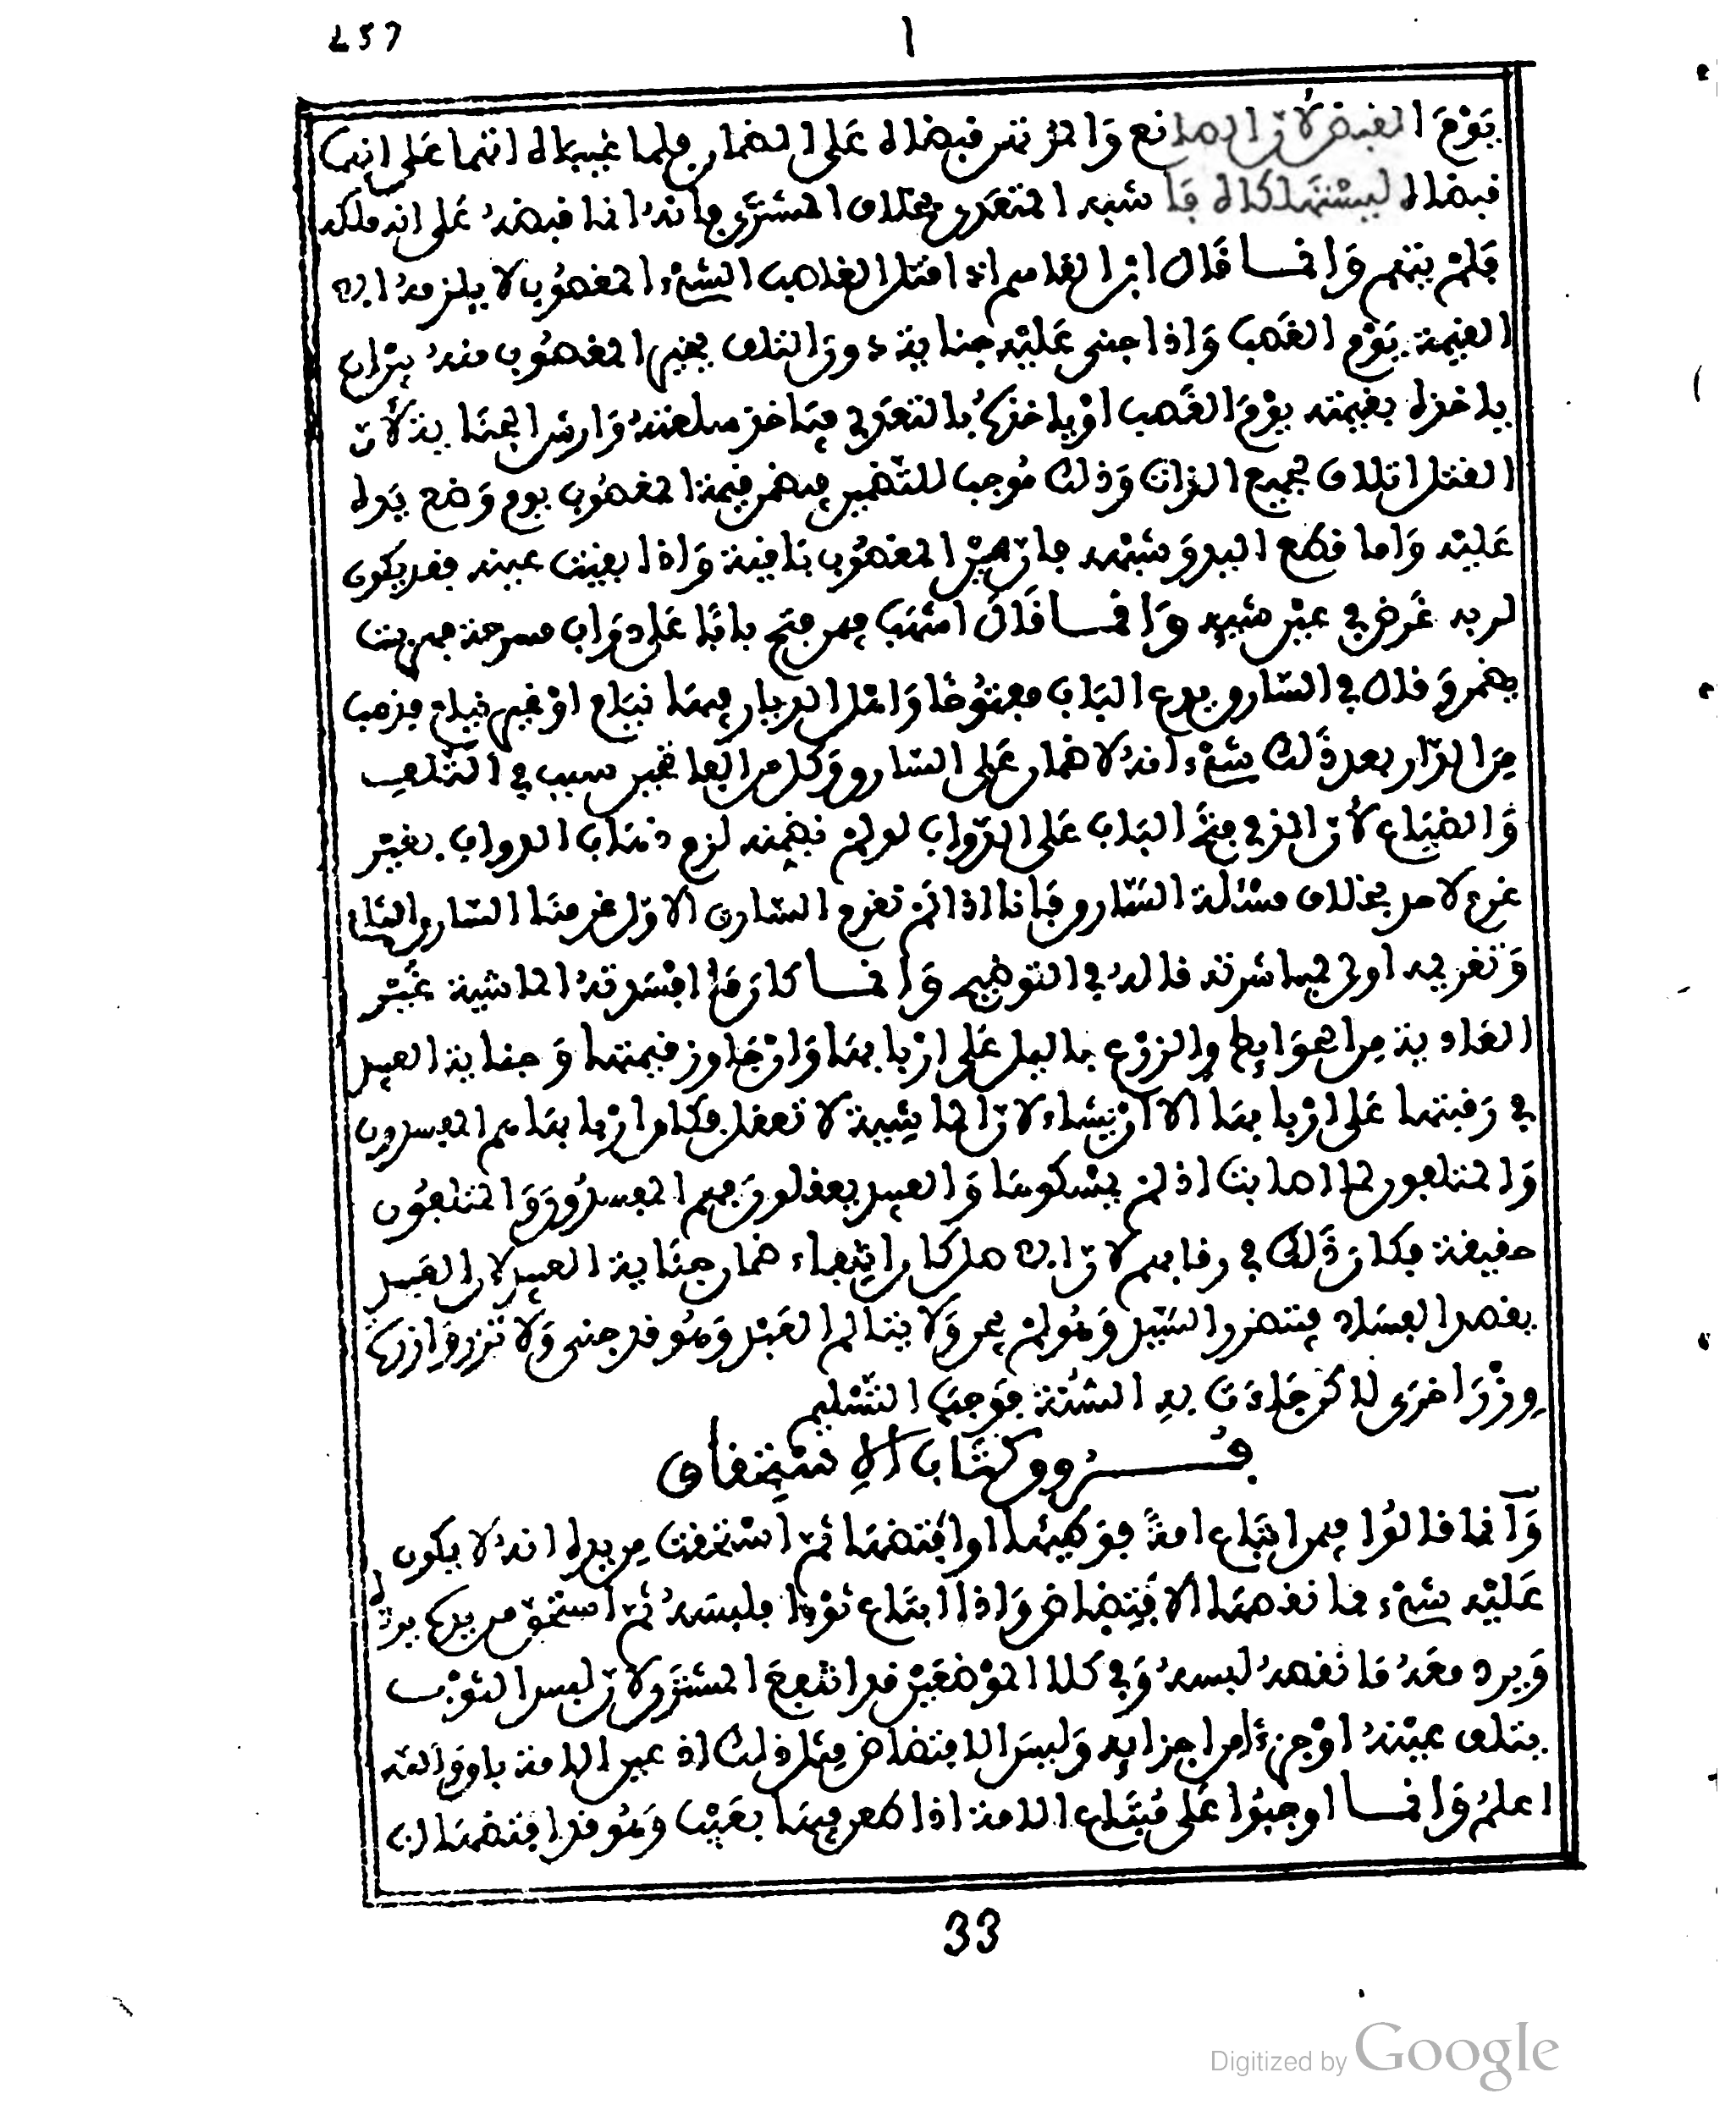 257 1
يَوْمَ القبض لأنّ الصانع وَالمرتهن قبضاه على الضمان فلما غيباه اتهما على انهما
قبضاه ليستهلكاه فأشبه المتعدي بخلاف المشتري فانه انما قبضه على انه ملكه
فلمْ يتهم وَانمـا قال ابن القاسم اذا قتل الغاصب الشيْء المغصُوب لا يلزمه الا
القيمة يَوْم الغَصب وَاذا جنى عَليْه جناية دون التلف يخير المغصُوب منه بيْن ان
ياخذه بقيمته يوْمَ الغَصب اوْ ياخذهُ بالتعدي فيَاخذ سلعته وَارش الجنَاية لأنّ
القتل اتلاف لجميع الذات وَذلك مُوجب للتضمين فيضمن قيمة المغصُوب يوم وَضع يَده
عَليْه وَاما قطع اليد وَشبْهه فانّ عيْن المغصُوب باقية وَاذا بقيت عينه فقد يكون
لربه غَرض في عيْن شيئه وَانمـا قَالَ اشهَب فيمن فتح بابًا عَلى دوَاب مسرحة فهربت
يضمن وَقال في السّارق يدع البَاب مفتوُحًا وَاهل الدار فيهَا نيَام اوْ غير نيام فيذهب
مِن الدّار بعد ذَلك شيْء انه لا ضمان عَلى السّارق وَكل من الفاتحين سبب في التّلف
وَالضيَاع لأنّ الذي فتحَ البَاب عَلى الدّواب لو لم نضمنه لزم ذهَاب الدواب بغيْر
غرم لاحد بخلاف مسْئلة السَّارق فَإنا اذا لمْ نغرم السَّارق الاوّل غرمنَا السّارق الثاني
وَتغريمه اولى لمباشرته قاله في التوضيح وَانمـا كانَ مَا افسَدته الماشية غَيْر
العَادية مِن الحوَايط وَالزرْع بالليل عَلى ارْبابهَا وَانْ جَاوز قيمتها وَجناية العبيد
في رَقبتها عَلى ارْبابهَا الا انْ يشَاء لانّ الماشية لا تعقل فكان ارْبابهَا هم المفسدون
وَالمتلفون لما اصابت اذ لم يمْسكوهَا وَالعبيد يعقلون فهم المفسدُون وَالمتلفوُن
حقيقة فكان ذَلكَ في رقابهم لانّ
يقصد الفسَاد فيتضرر السَّيّد وَهوُ لم يجن وَلا يتالم العَبْد وَهوُ قد جنى وَلا تزر وَازرة
وِزْرَ اخرَى لاكن جَاءت بهِ السُّنّة فوَجبَ التَّسْليم
فُـــرُوق كتَاب الاِسْتِحْقاق
وَانما قالوُا فيمن ابتَاع امةً فوَطيهَا او افْتضهَا ثمّ اسْتحقت مِن يده انهُ لا يكون
عَليْه شيْء لما نقصهَا الافْتِضاض وَاذا ابتَاع ثوْبا فلبسَهُ ثمّ استحق من يده يردّه
وَيرد معَهُ مَا نقصه لبسهُ وَفي كلا الموْضعَيْن قد انتفعَ المشتري لانّ لبس الثوْب
يتلف عيْنهُ اوْ جزْءًا من اجزايه وَليسَ الافتضاض مِثل ذلك اذ عين الامة باق وَالله
اعلمُ وَانمـا اوجبوُا عَلى مُبتَاع الامة اذا ظهر فيهَا بعَيْب وَهوُ قد افتضهَا ان
33
Digitized by Google